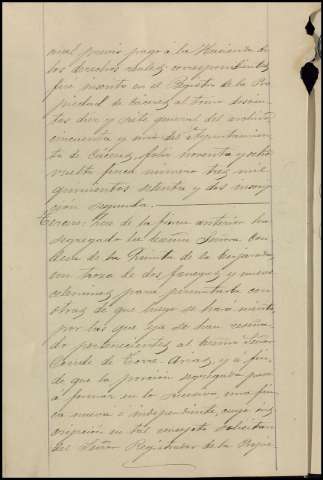 cual previo pago á la Hacienda de
los derechos reales correspondientes
fue inscrito en el Registro de la Pro
piedad de Cáceres al tomo doscien
tos diez y siete general del archivo
cincuenta y uno del Ayuntamien
to de Cáceres, folio noventa y ocho
vuelto finca número tres mil
quinientos setenta y dos
segunda.
Tercero: Que de la finca anterior ha
segregado la Excma Señora Con
desa de la Quinta de la Enjarada
un trozo de dos fanegas y nueve
celemines para permutarlo con
otras de que luego se hará mérito,
por las que ya se han
do pertenecientes al Excmo Señor
Conde de Torre-Arias, y á fin
de que la porción segregada pase
a formar en lo sucesivo una fin
ca nueva é independiente, cuya ins
cripción en tal concepto solicitan
del Señor Registrador de la Propie